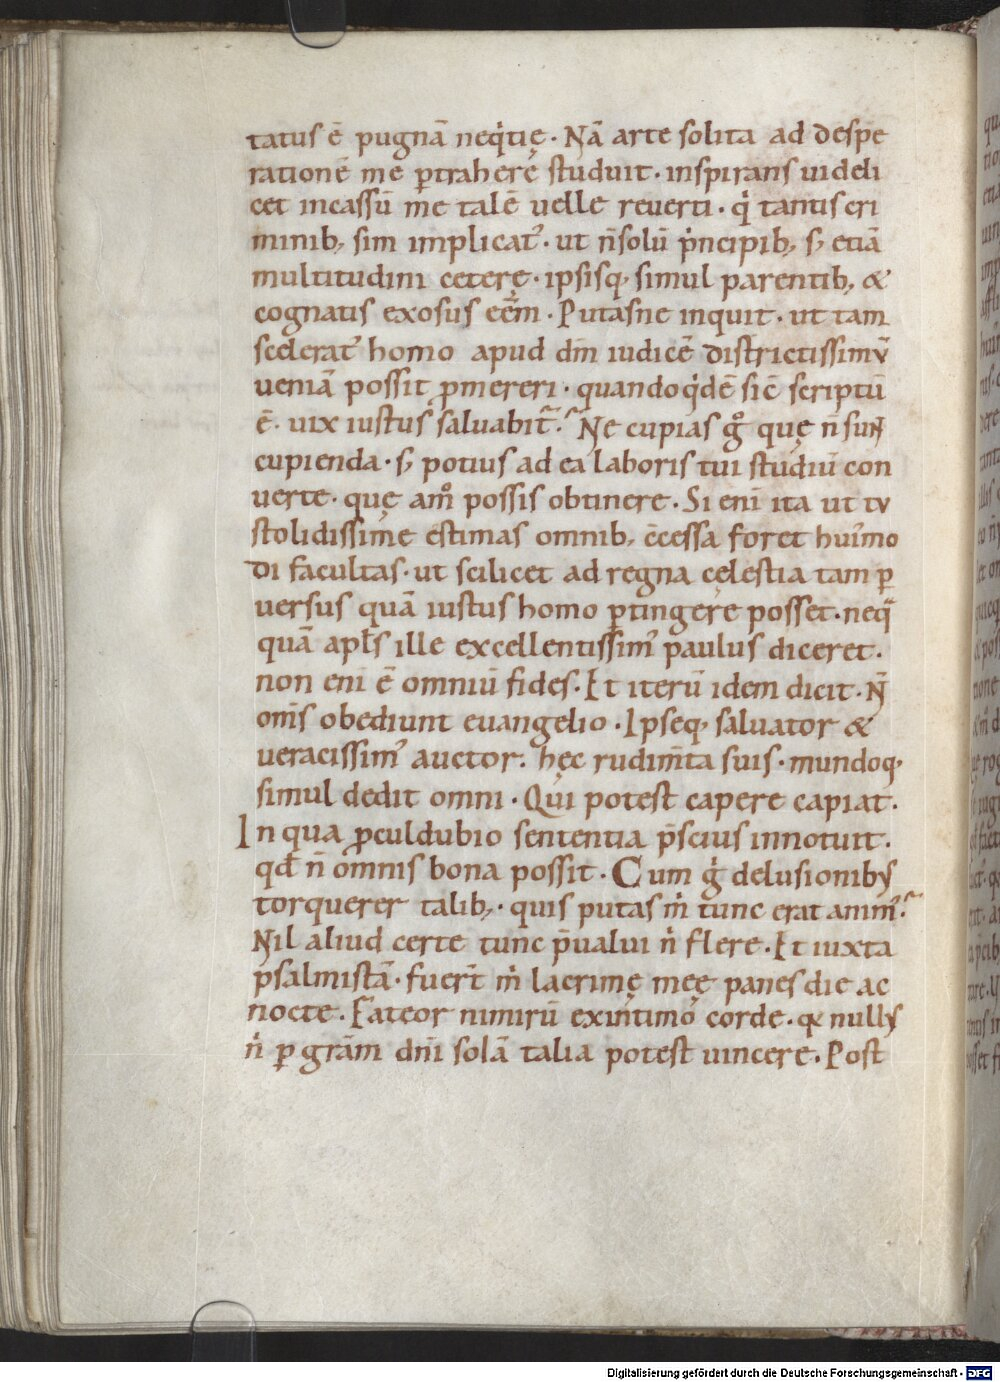 tatus ē pugnā neq̇tię. Nā arte solita ad despe
rationē me ꝑtraherē studuit. inspirans uideli
cet incassū me talē uelle reuerti. q̇ tantis cri
minib; sim implicat᾿. ut n̄ solū ṗncipib; s; etiā
multitudini cęterę. ipsisq; simul parentib; &
cognatis exosus eēm. Putasne inquit. ut tam
scelerat᾿ homo apud dm̄ iudicē districtissimū
ueniā possit ꝓmereri. quandoq̇dē sic̄ scriptū
ē. uix iustus saluabit᷑. Ne cupias g̊ quę n̄ sunt
cupienda. s; potius ad ea laboris tui studiū con
uerte. quę am̊ possis obtinere. Si eni ita ut tu
stolidissime ęstimas omnib; c̄cessa foret hui᾿mo
di facultas. ut scilicet ad regna cęlestia tam ꝑ
uersus quā iustus homo ꝑtingere posset. neq̄
quā apl̄s ille excellentissim᾿ paulus diceret.
non eni ē omniū fides. Et iterū idem dicit. N̄
om̄s obediunt euangelio. Ipseq; saluator &
ueracissim᾿ auctor. hęc rudim̄ta suis. mundoq;
simul dedit omni. Qui potest capere capiat.
In qua ꝓculdubio sententia p̄scius innotuit.
qd̄ n̄ omnis bona possit. Cum g̊ delusionibus
torquerer talib; quis putas ṁ tunc erat anim᾿.
Nil aliud certe tunc p̄ualui n̊ flere. Et iuxta
psalmistā. fuer̄t ṁ lacrimę meę panes die ac
nocte. Fateor nimirū ex intimo corde. qa nullus
n̊ ꝑ grām dn̄i solā talia potest uincere. Post
Digitalisierung gefördert durch die Deutsche Forschungsgemeinschaft - DFG